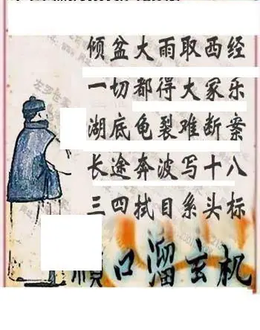 倾盆大雨取西经
一切都得大家乐
湖底龟裂难断案
长途奔波写十八
三四拭目系头标
顺口溜玄机